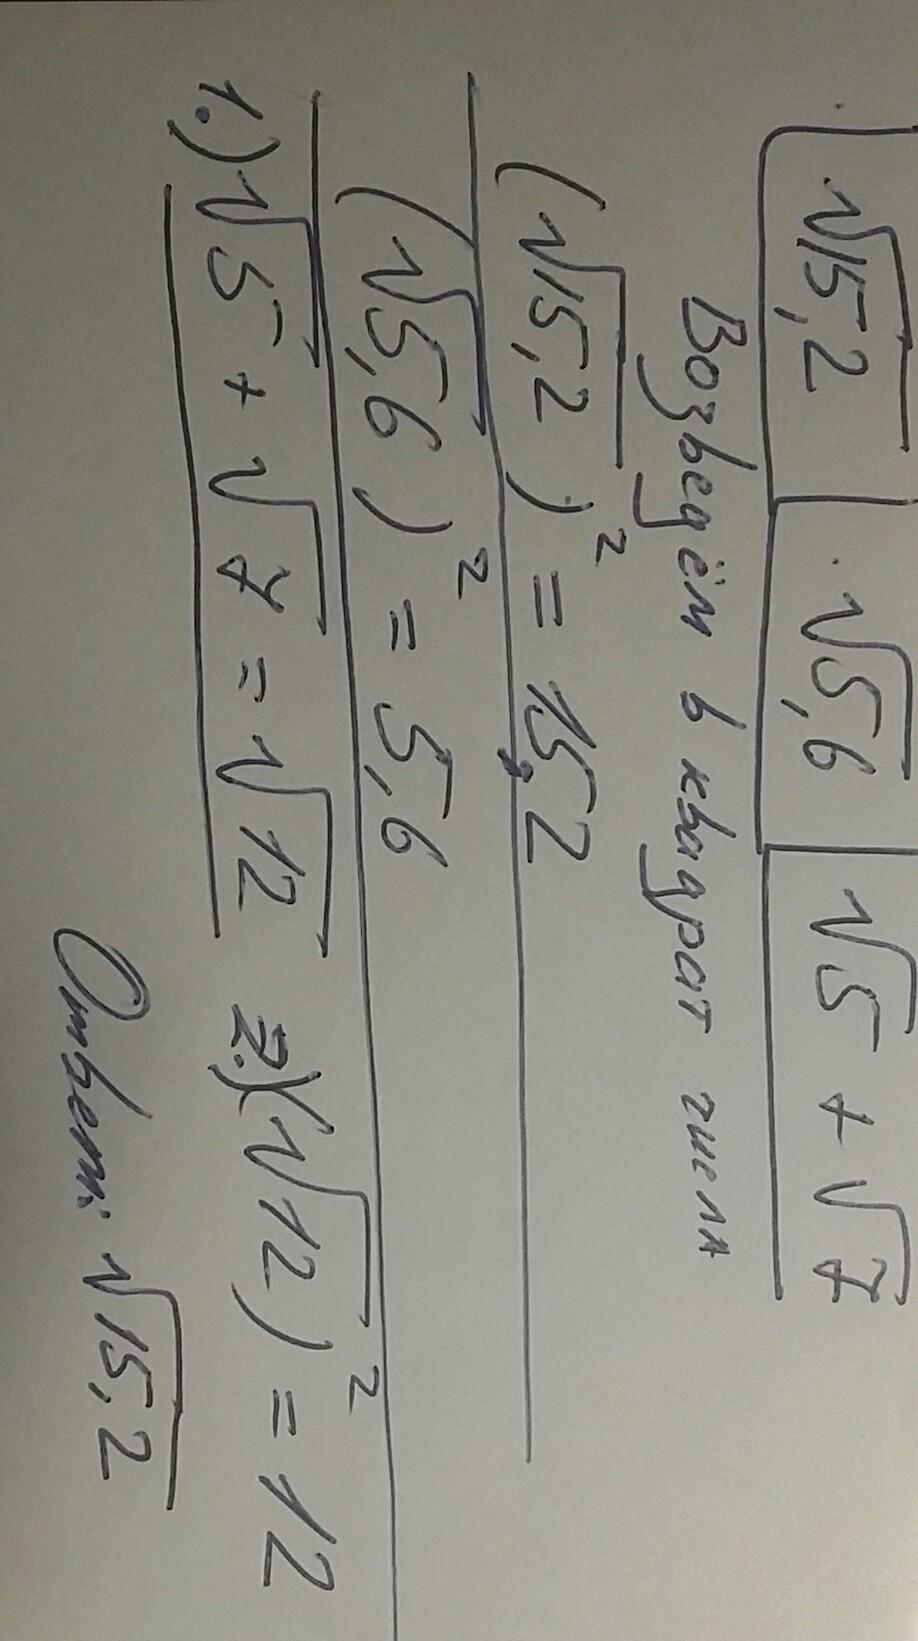 √15,2 √5,6 √5 + √7
Возведём в квадрат числа
(√15,2)² = 15,2
(√5,6)² = 5,6
1.) √5 + √7 = √12 2.) (√12)² = 12
Ответ: √15,2